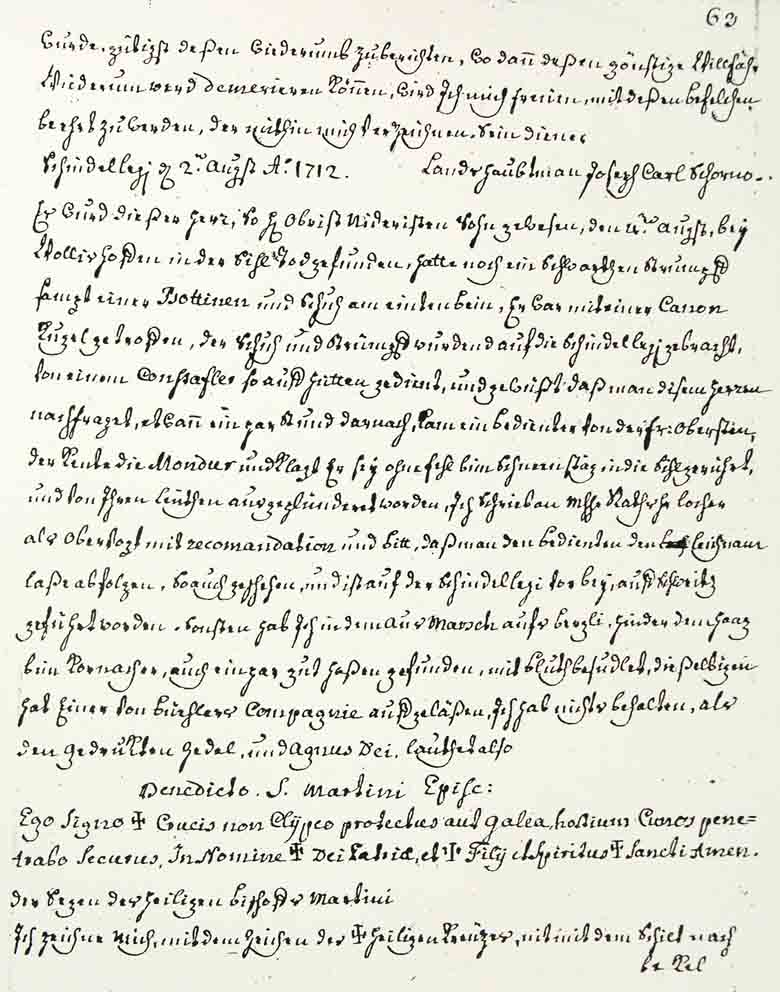 63
wurde, gütigst deßen wiederumb zuberichten, wo dañ deßen günstige Willfahr
Wiederum werd demerieren können, wird Ich mich freüen, mit deßen befelchen
beehrt zu werden, der mithin mich verzeichnen. Sein diener
Schindellegj d 2.t Augst Aº 1712. Landshaubtman Joseph Carl Schorno.
Er wurd dießer herr, so H Obrist Nideristen Sohn gewesen, den 4.t Augst, bey
Wollishoffen in der Sihl Tod gefunden, hatte noch ein Schwarthen Strumpff
sampt einer Bottinen und Schuh am einten bein, Er war mit einer Canon
Kugel getroffen, der Schuh und Strumpff wurdend auf die Schindellegj gebracht,
von einem Constafler so auff hütten gedient, und gewüßt daß man disem herren
nachfraget, etwañ ein par Stund darnach, kam ein bedienter von der fr: Obersten,
der kente die Mondur und klagt Er sey ohnefehl bim Schneenstäg in die Sihl gerührt,
und von Ihren leüthen ausgeplünderet worden, Ich Schrieb an Mhh Rathshr locher
als Obervogt mit recomandation und bitt, daß man den bedienten den leichnam
laße abfolgen, so auch geschehen, und ist auf der Schindellegi vorbey, auff Schweitz
geführt worden. Sonsten hab Ich in dem Aus Marsch aufs bergli, hinder dem haag
bim Kornacher, auch ein par gut hoßen gefunden, mit bluth besudlet, dießelbigen
hat Einer von büehlers Compagnie auffgeläßen, Ich hab nichts behalten, als
den gedrukten zedel, und Agnus Dei. lauthet also
Benedicto. S. Martini Episc:
Ego Signo ✠ Crucis non Clÿpeo protectus aut galea, hostium Cuneos pene=
trabo Securus, In Nomine ✠ Dei Patris, et ✠ Filij et Spiritus ✠ Sancti Amen.
der Segen des heiligen bischoffs Martini
Ich zeichne mich, mit dem zeichen des ✠ heiligen Kreützes, nit mit dem Schilt nach
be kel